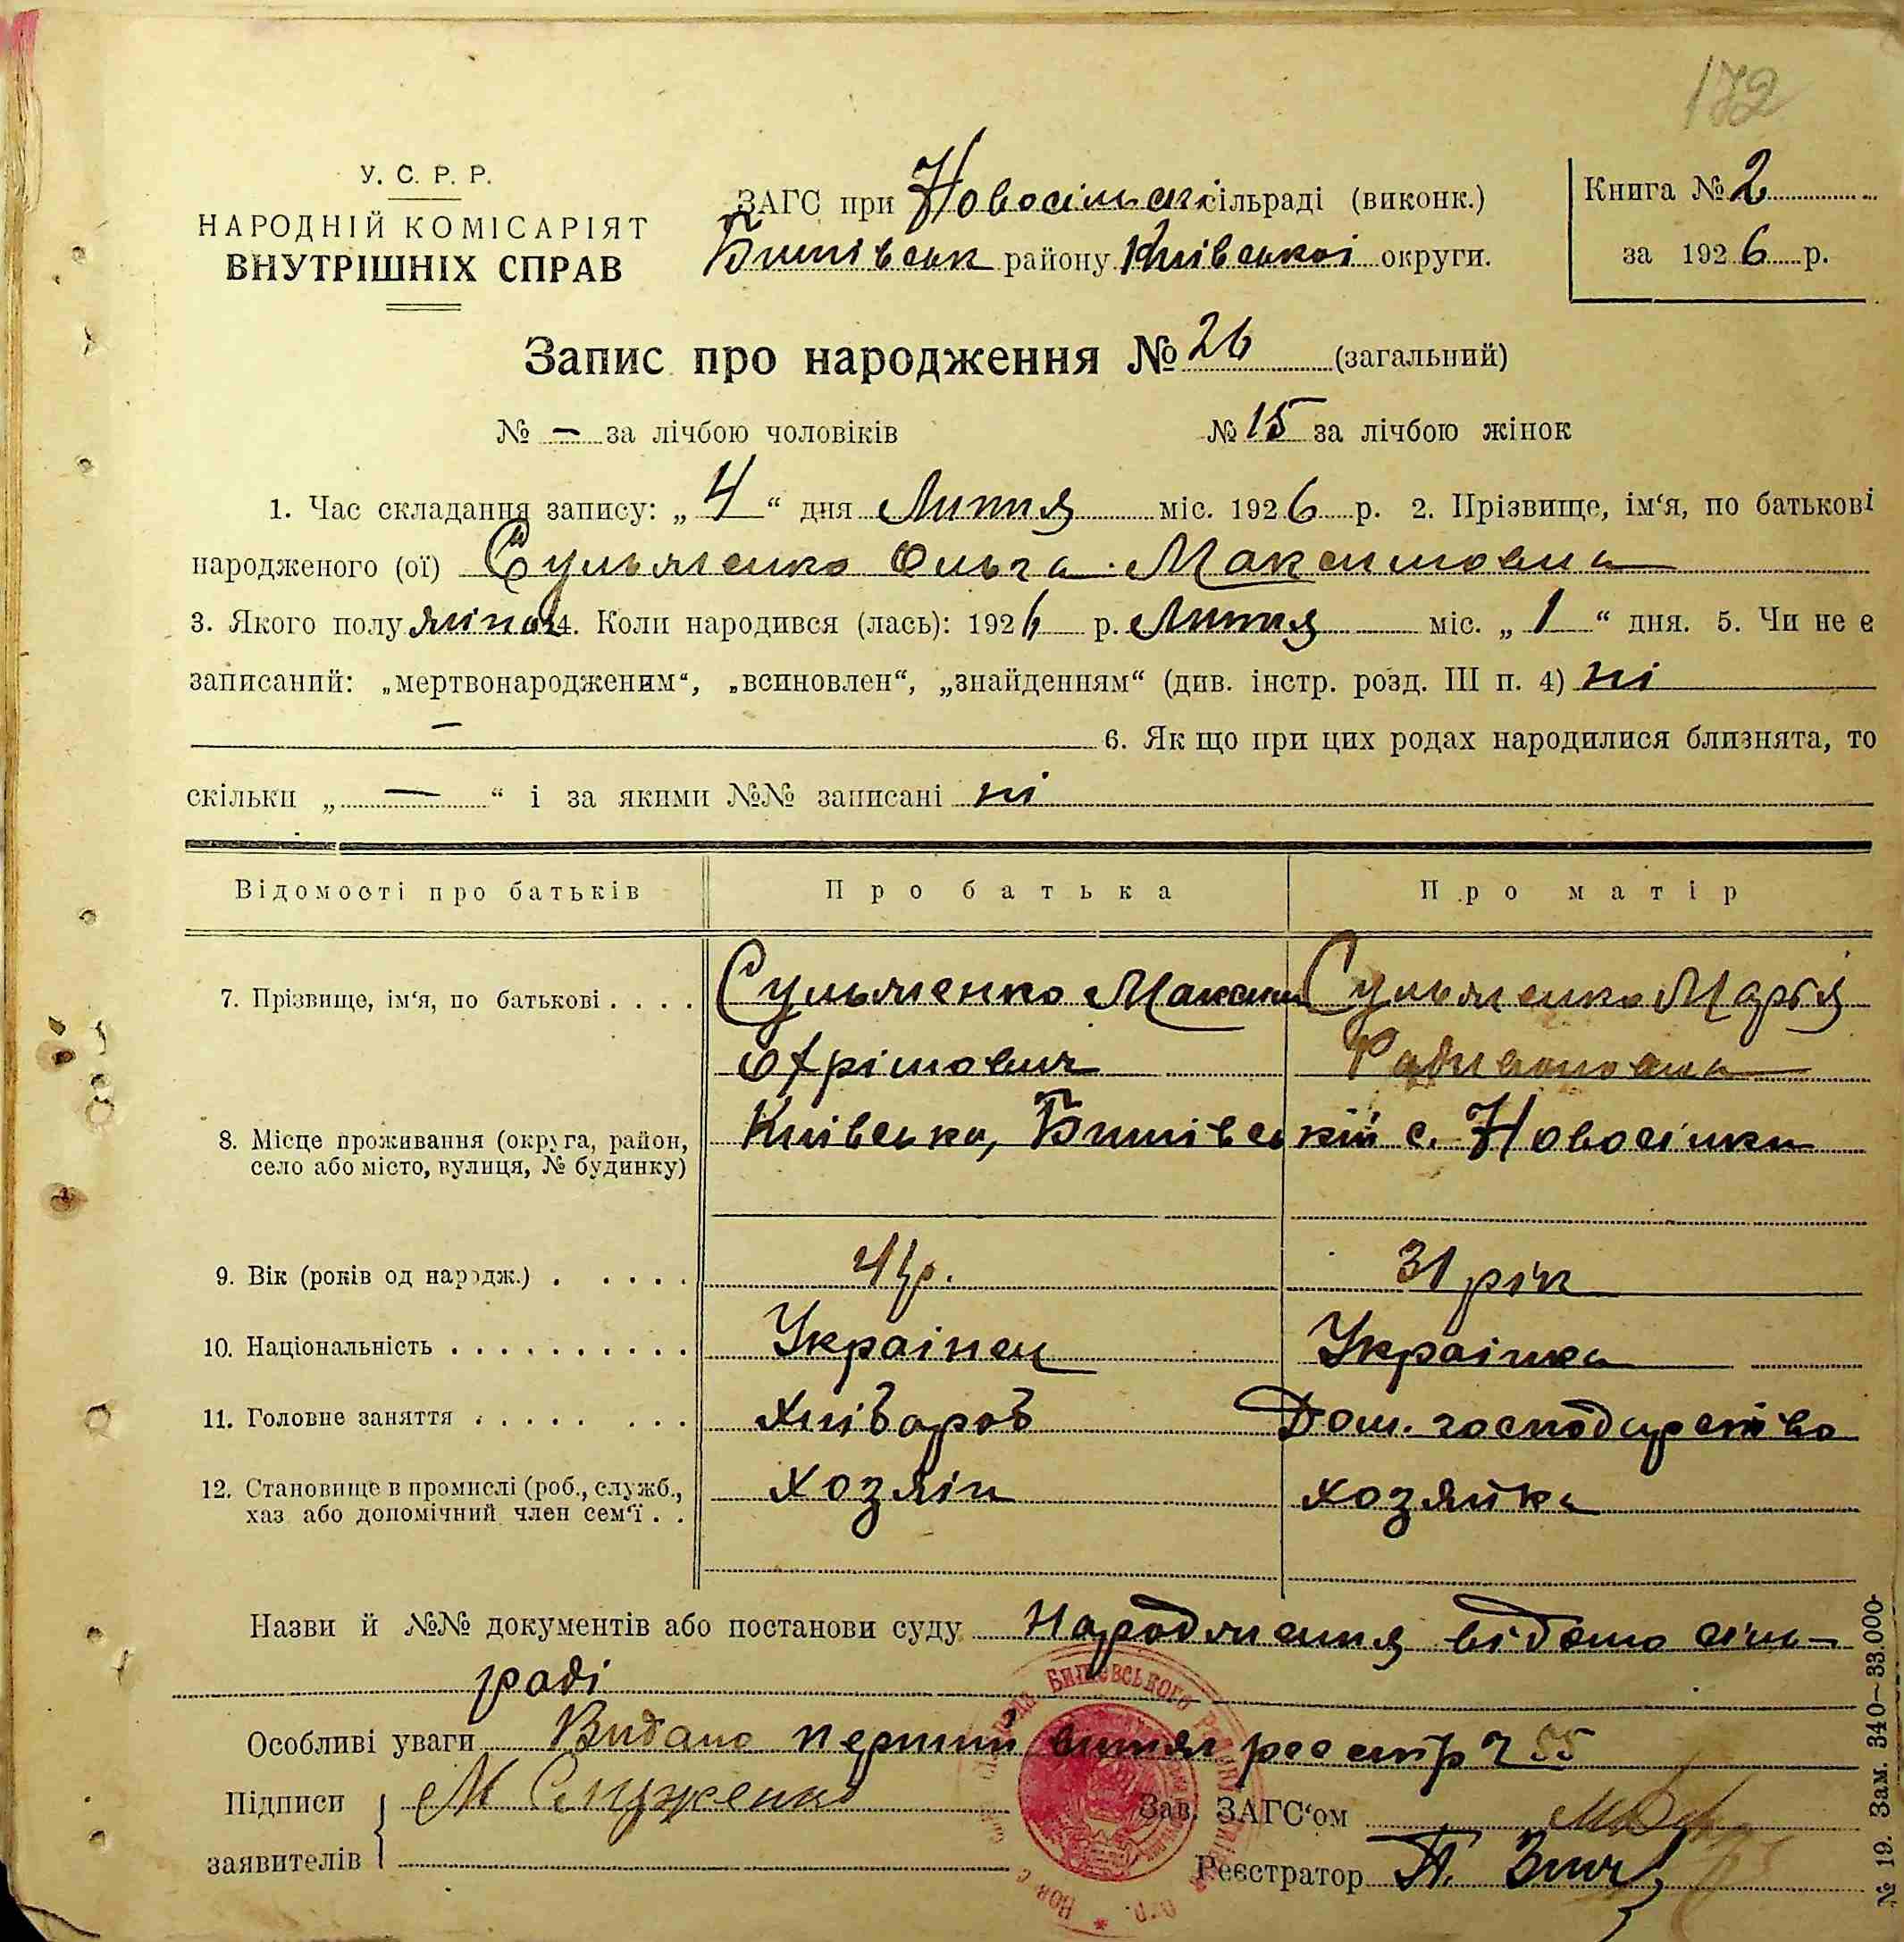 172
У. С. Р. Р.
НАРОДНІЙ КОМІСАРІЯТ
ВНУТРІШНІХ СПРАВ
ЗАГС при Новосільск сільраді (виконк.)
Бишівськ району Київської округи.
Книга № 2
за 1926 р.
Запис про народження № 26 (загальний)
№ — за лічбою чоловіків № 15 за лічбою жінок
1. Час складання запису: „4“ дня Липня міс. 1926 р. 2. Прізвище, ім‘я, по батькові
народженого (ої) Сульженко Ольга Максимовна
3. Якого полу жіноч 4. Коли народився (лась): 1926 р. Липня міс. „1“ дня. 5. Чи не є
записаний: „мертвонародженим“, „всиновлен“, „знайденням“ (див. інстр. розд. III п. 4) ні
— 6. Як що при цих родах народилися близнята, то
скільки „—“ і за якими №№ записані ні
Відомості про батьків Про батька Про матір
7. Прізвище, ім‘я, по батькові . . . . Сульженко Максим Сульженко Марья
Охрімович
8. Місце проживання (округа, район, село або місто, вулиця, № будинку) Київська, Бишівський с. Новосілки
9. Вік (років од народж.) . . . . . 41р. 31 рік
10. Національність . . . . . . . . . . Українец Украінка
11. Головне заняття . . . . . . . . Хлібороб Дом. господарство
12. Становище в промислі (роб., служб., хаз або допомічний член сем‘ї . . хозяін хозяйка
Назви й №№ документів або постанови суду Народження відомо сіль-
раді
Особливі уваги Видано перший витяг реестр ч 55
Підписи заявителів М Служенко
Зав. ЗАГС‘ом
Реєстратор П.
Бишевського
№ 19. Зам. 340—33.000